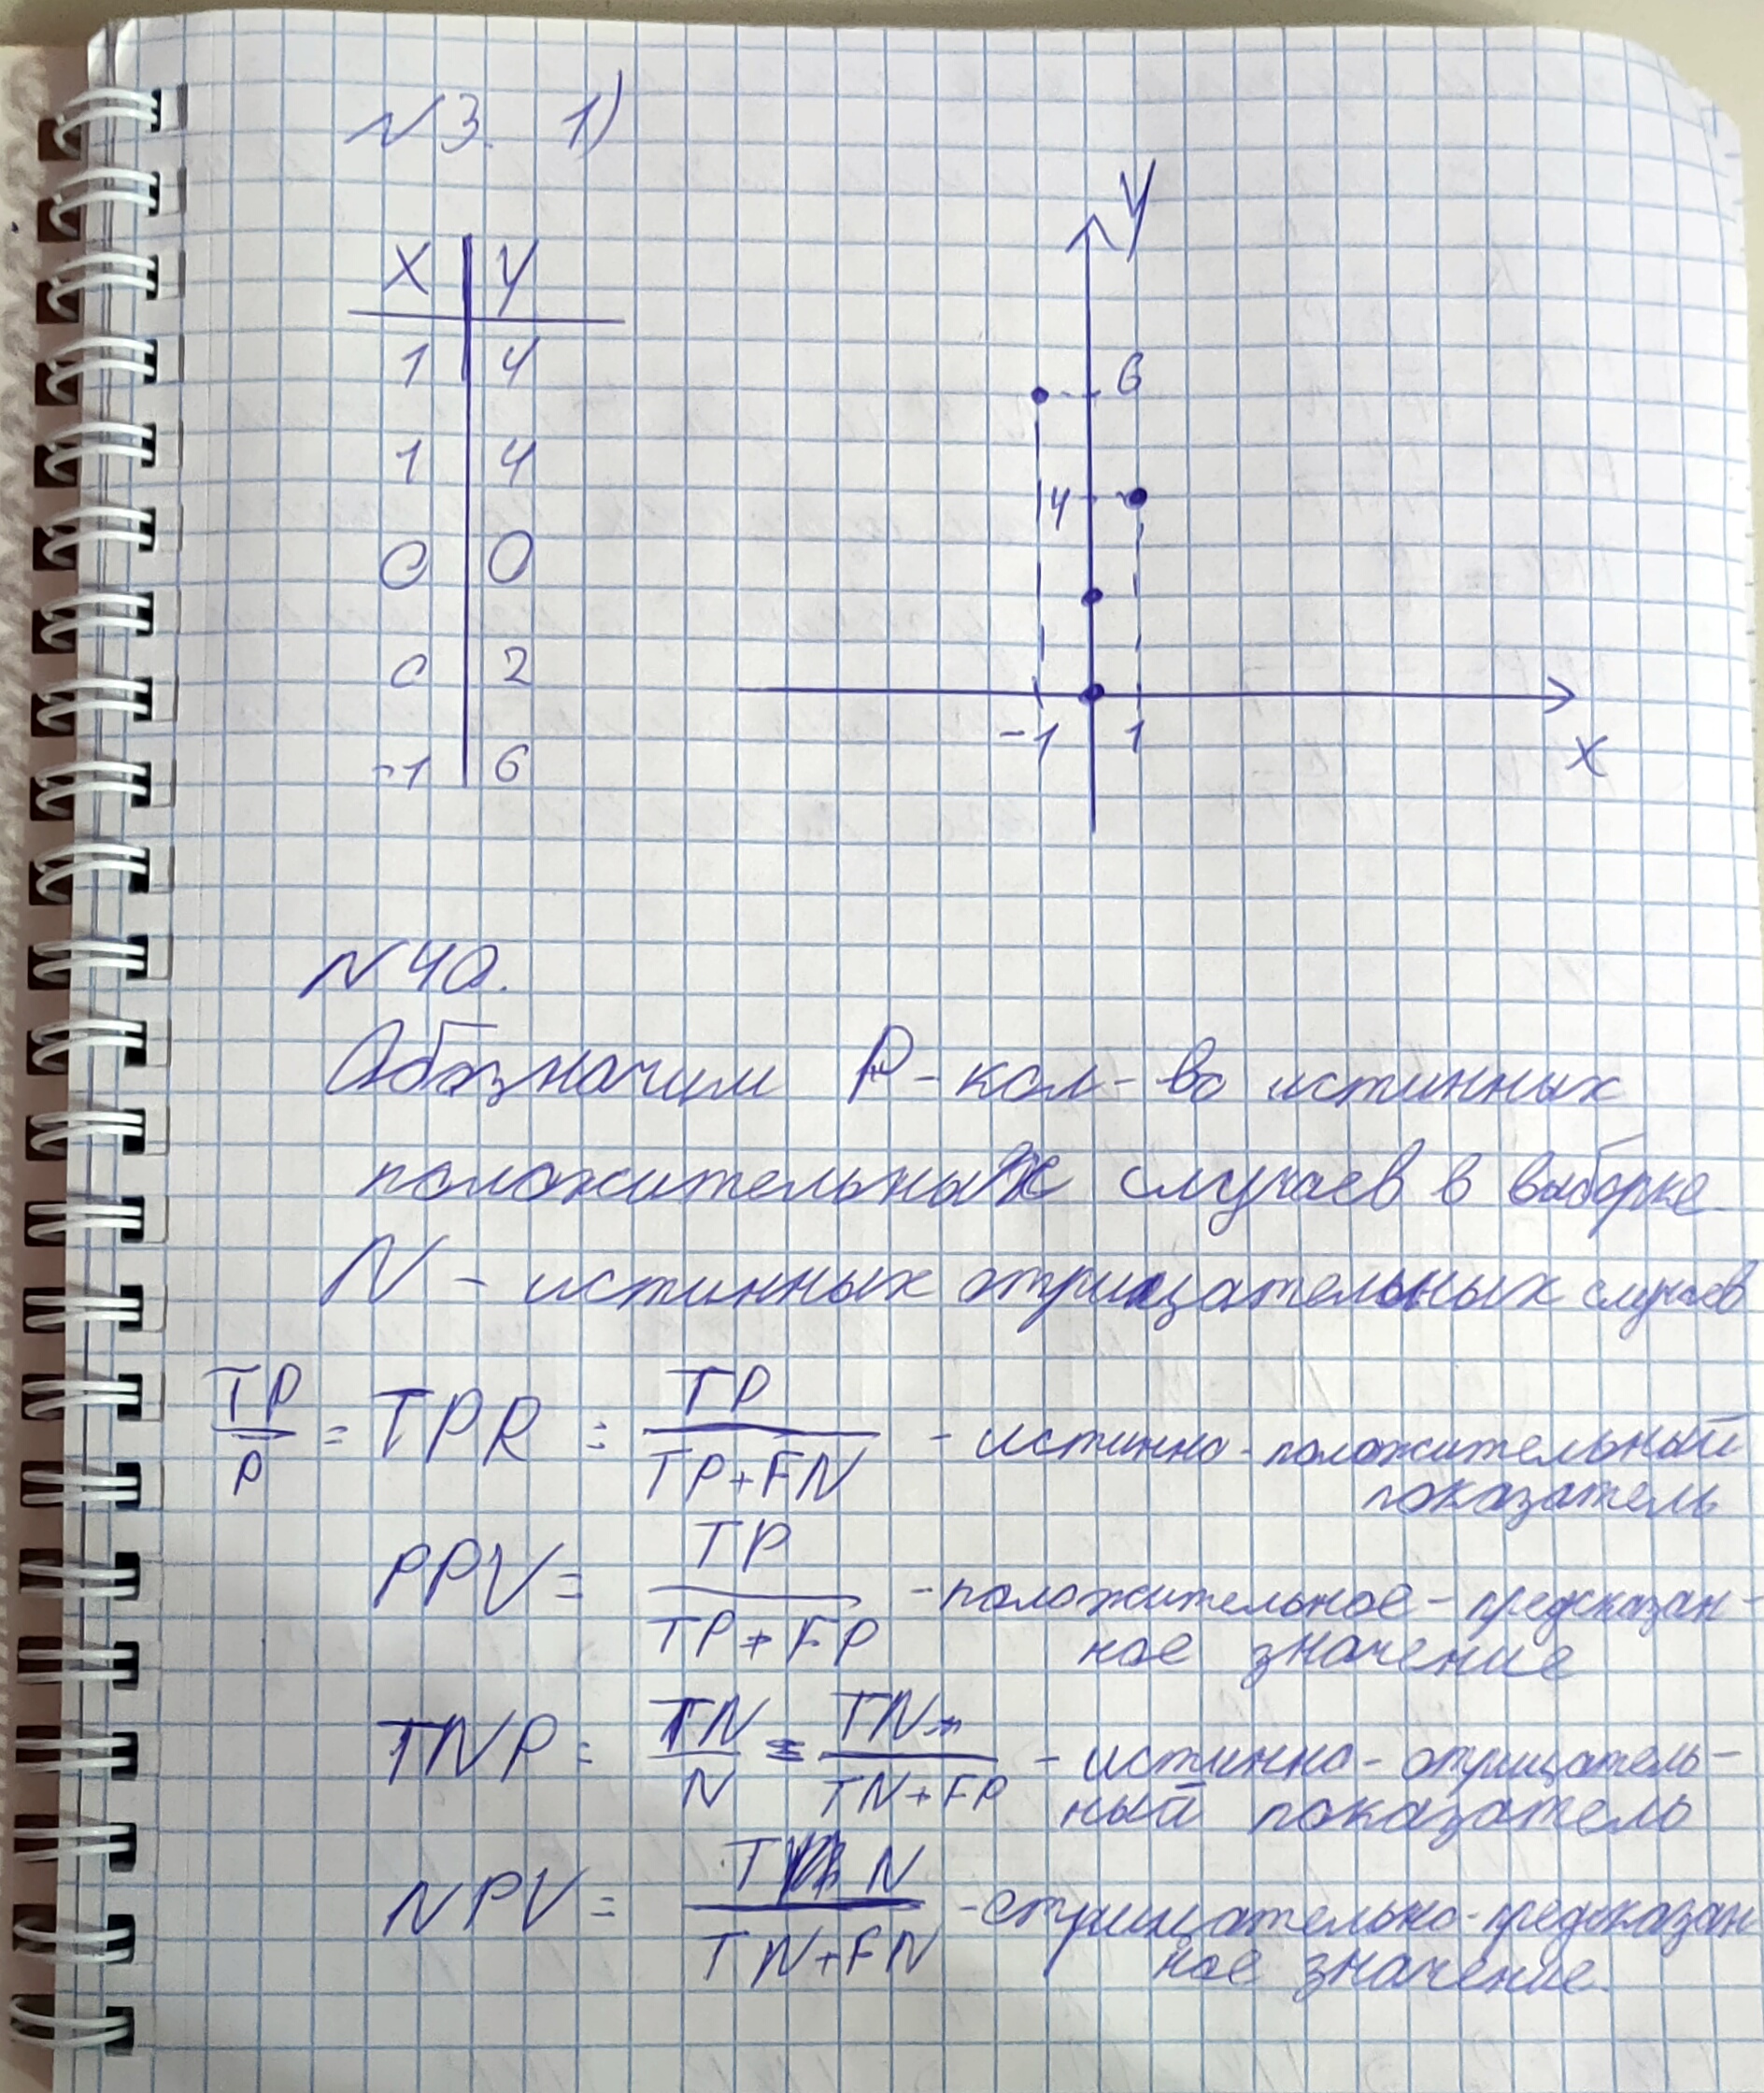 N3. 1)
X | Y
1 | 4
1 | 4
0 | 0
0 | 2
-1 | 6
Y
6
4
-1 1
X
N4a.
Обозначим P - кол-во истинных
положительных случаев в выборке
N - истинных отрицательных случаев
TP/P = TPR = TP/(TP+FN) - истинно-положительный
показатель
PPV = TP/(TP+FP) - положительное-предсказан-
ное значение
TNP = TN/N = TN/(TN+FP) - истинно-отрицатель-
ный показатель
NPV = TN/(TN+FN) - отрицательно-предсказан
ное значение.